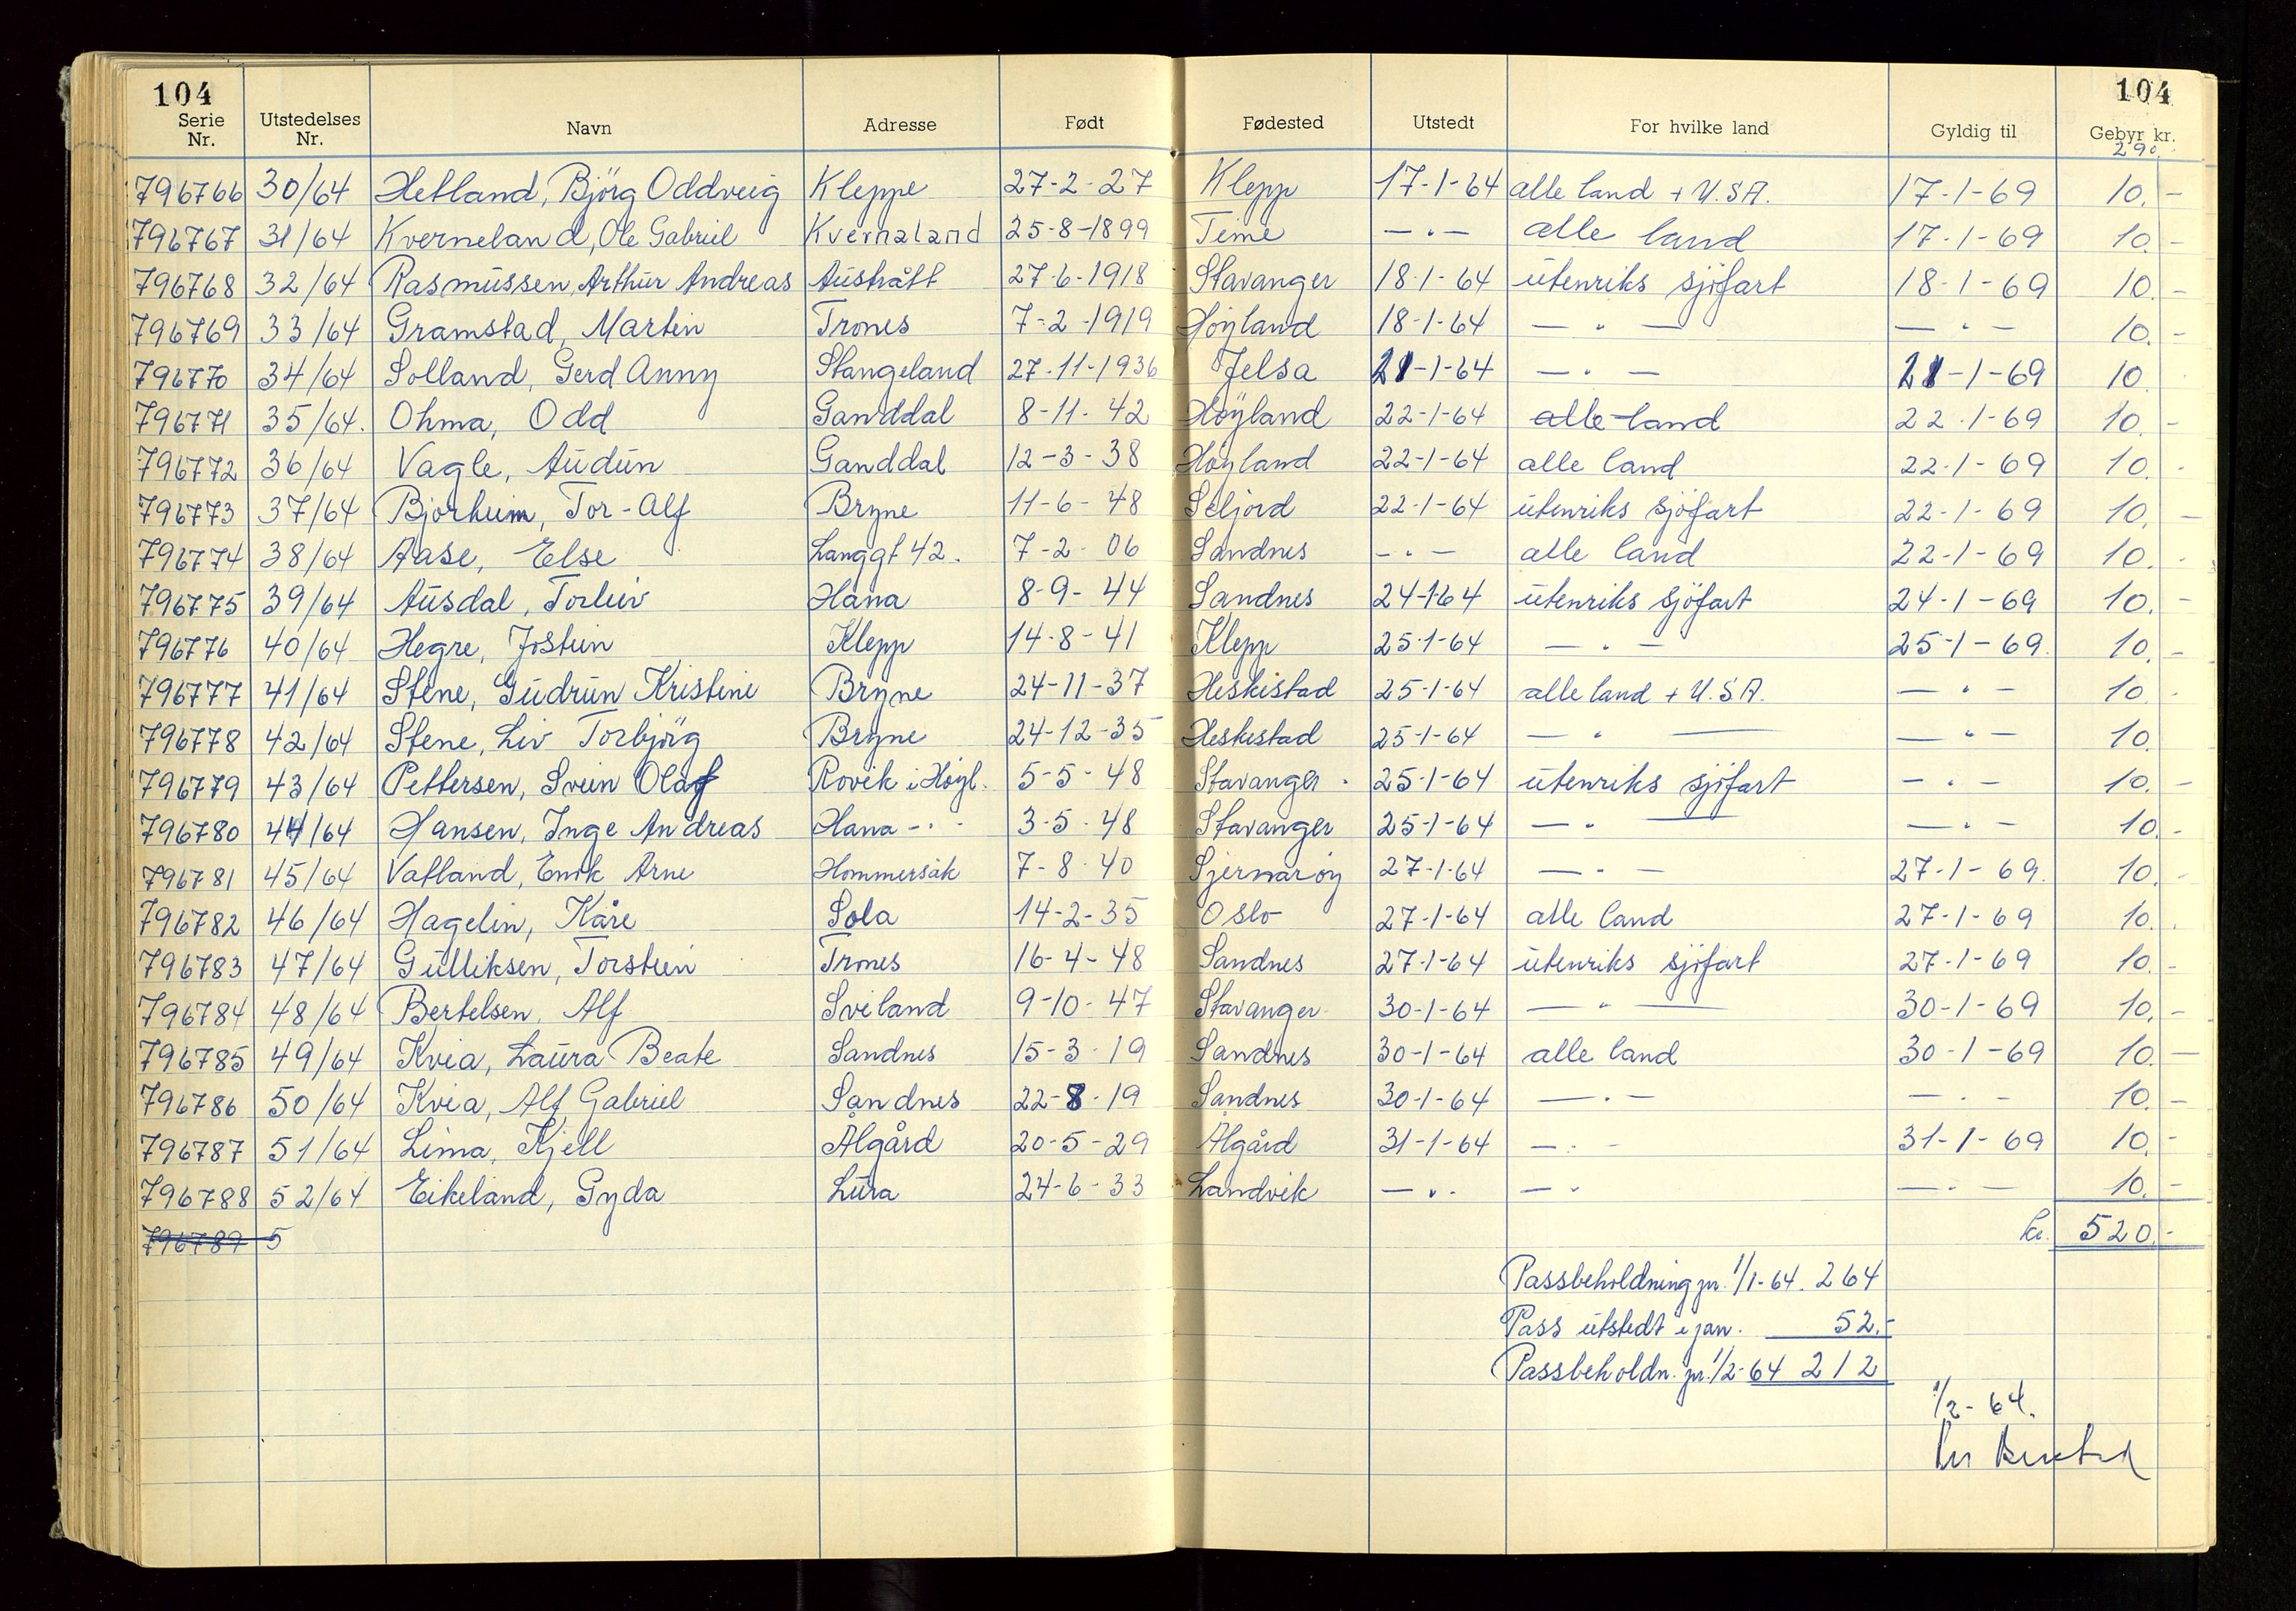 104 104
Serie Nr. Utstedelses Nr. Navn Adresse Født Fødested Utstedt For hvilke land Gyldig til Gebyr kr.
290.
796766 30/64 Hetland, Björg Oddveig Kleppe 27-2-27 Klepp 17-1-64 alle land + U.S.A. 17-1-69 10.-
796767 31/64 Kverneland, Ole Gabriel Kvernaland 25-8-1899 Time — " — alle land 17-1-69 10.-
796768 32/64 Rasmussen, Arthur Andreas Austrått 27-6-1918 Stavanger 18-1-64 utenriks sjöfart 18-1-69 10.-
796769 33/64 Gramstad, Martin Trones 7-2-1919 Höyland 18-1-64 — " — — " — 10.-
796770 34/64 Solland, Gerd Anny Stangeland 27-11-1936 Jelsa 21-1-64 — " — 21-1-69 10
796771 35/64. Ohma, Odd Ganddal 8-11-42 Höyland 22-1-64 alle land 22-1-69 10.-
796772 36/64 Vagle, Audun Ganddal 12-3-38 Höyland 22-1-64 alle land 22-1-69 10.-
796773 37/64 Bjorheim, Tor-Alf Bryne 11-6-48 Seljord 22-1-64 utenriks sjöfart 22-1-69 10.-
796774 38/64 Aase, Else Langgt 42. 7-2-06 Sandnes — " — alle land 22-1-69 10.-
796775 39/64 Ausdal, Torleiv Hana 8-9-44 Sandnes 24-1-64 utenriks sjöfart 24-1-69 10.-
796776 40/64 Hegre, Jostein Klepp 14-8-41 Klepp 25-1-64 — " — 25-1-69. 10.-
796777 41/64 Stene, Gudrun Kristine Bryne 24-11-37 Heskistad 25-1-64 alle land + U.S.A. — " — 10.-
796778 42/64 Stene, Liv Torbjörg Bryne 24-12-35 Heskestad 25-1-64 — " — — " — 10.
796779 43/64 Pettersen, Svein Olaf Rovik i Høyl. 5-5-48 Stavanger 25-1-64 utenriks sjöfart — " — 10.-
796780 44/64 Hansen, Inge Andreas Hana - " - 3-5-48 Stavanger 25-1-64 — " — — " — 10.-
796781 45/64 Vatland, Enok Arne Hommersåk 7-8-40 Sjernarøy 27-1-64 — " — 27-1-69. 10.-
796782 46/64 Hagelin, Kåre Sola 14-2-35 Oslo 27-1-64 alle land 27-1-69 10.
796783 47/64 Gulliksen, Torstein Trones 16-4-48 Sandnes 27-1-64 utenriks sjöfart 27-1-69 10.-
796784 48/64 Bertelsen, Alf Sviland 9-10-47 Stavanger 30-1-64 — " — 30-1-69 10.-
796785 49/64 Kvia, Laura Beate Sandnes 15-3-19 Sandnes 30-1-64 alle land 30-1-69 10.-
796786 50/64 Kvia, Alf Gabriel Sandnes 22-8-19 Sandnes 30-1-64 — " — — " — 10.-
796787 51/64 Lima, Kjell Ålgård 20-5-29 Ålgård 31-1-64 — " — 31-1-69 10.-
796788 52/64 Eikeland, Gyda Lura 24-6-33 Landvik — " - — " — " — 10.-
796789 5 kr. 520.-
Passbeholdning pr. 1/1-64. 264
Pass utstedt i jan. 52.-
Passbeholdn. pr. 1/2-64 212
1/2-64.